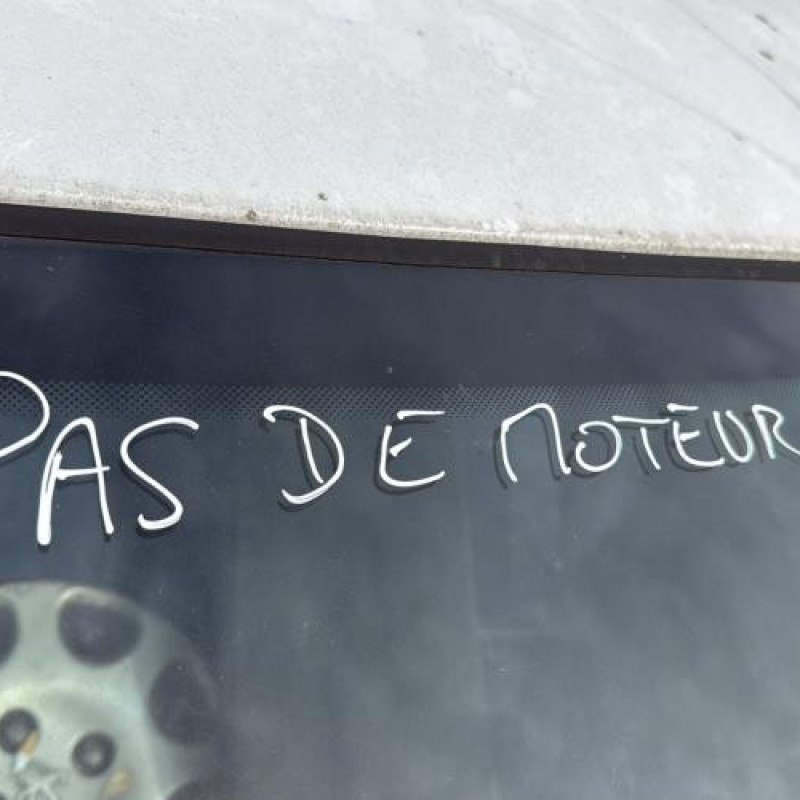 PAS DE MOTEUR